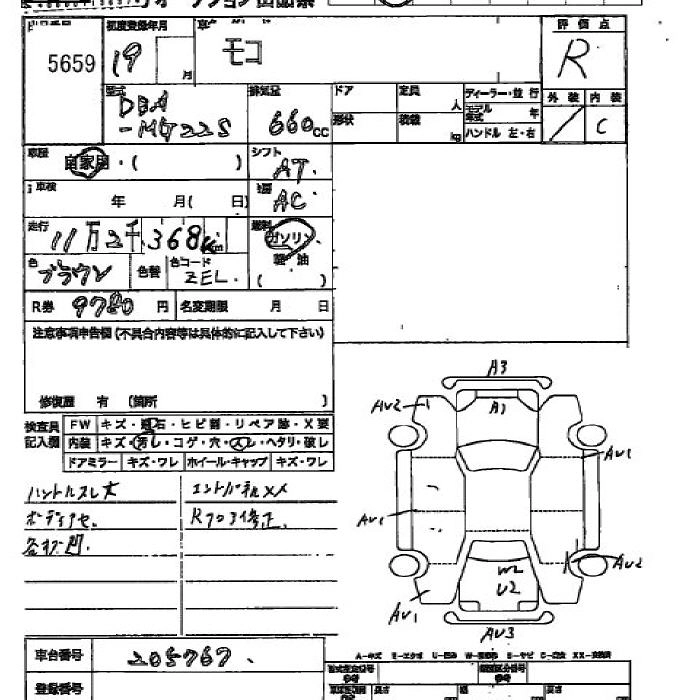 5659
初度登録年月
19 月
モコ
評価点
R
型式
DBA
-MG22S
排気量
660cc
ドア
定員
人
形状
積載
kg
ディーラー・並行
モデル年式 年
ハンドル 左・右
外装 内装
C
車歴
自家用・( )
シフト
AT
車検
年 月( 日)
AC
走行
11万2千368km
燃料
ガソリン
軽油
( )
色
ブラウン
色替
色コード
ZEL
R券 9780 円
名変期限 月 日
注意事項申告欄(不具合内容等は具体的に記入して下さい)
修復歴 有 (箇所 )
検査員
記入欄
FW キズ・飛石・ヒビ割・リペア跡・X要
内装 キズ・汚れ・コゲ・穴・スレ・ヘタリ・破レ
ドアミラー キズ・ワレ ホイール・キャップ キズ・ワレ
ハンドルスレ大
ボディアセ
各キズ凹
エンドパネルXX
Rフロア修正
A3
AU2
A1
AU1
AU1
W2
U2
AU2
AU1
AU3
A-キズ E-エクボ U-凹み W-補修跡 S-サビ C-腐食 XX-交換済
車台番号 205767
登録番号
長さ
幅
高さ